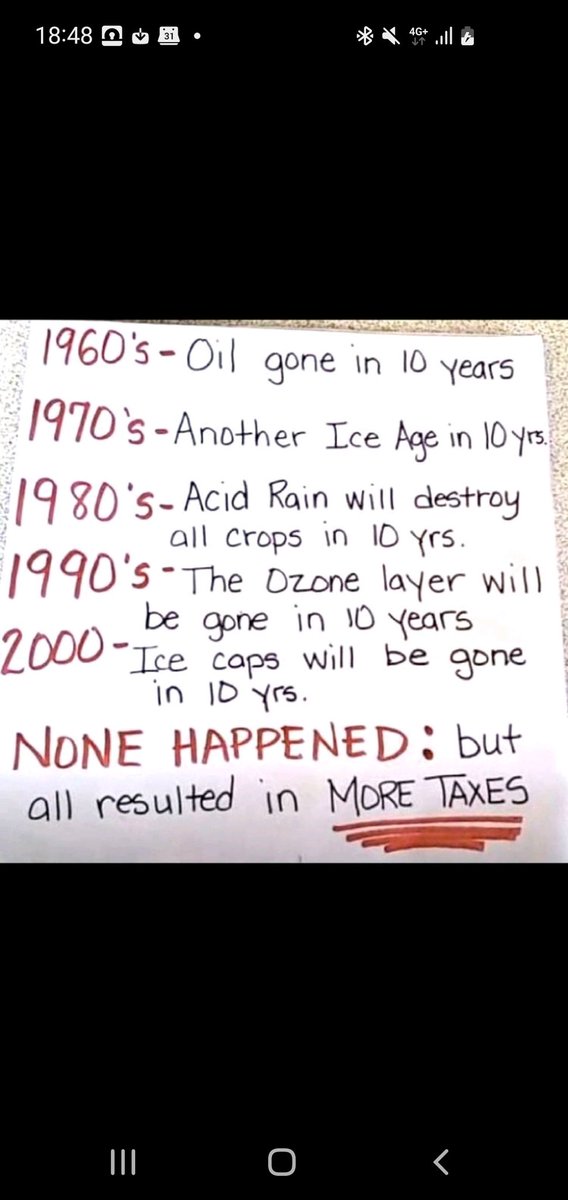 18:48
31
4G+
1960's - Oil gone in 10 years
1970's - Another Ice Age in 10 yrs.
1980's - Acid Rain will destroy
all crops in 10 yrs.
1990's - The Ozone layer will
be gone in 10 years
2000 - Ice caps will be gone
in 10 yrs.
NONE HAPPENED: but
all resulted in MORE TAXES